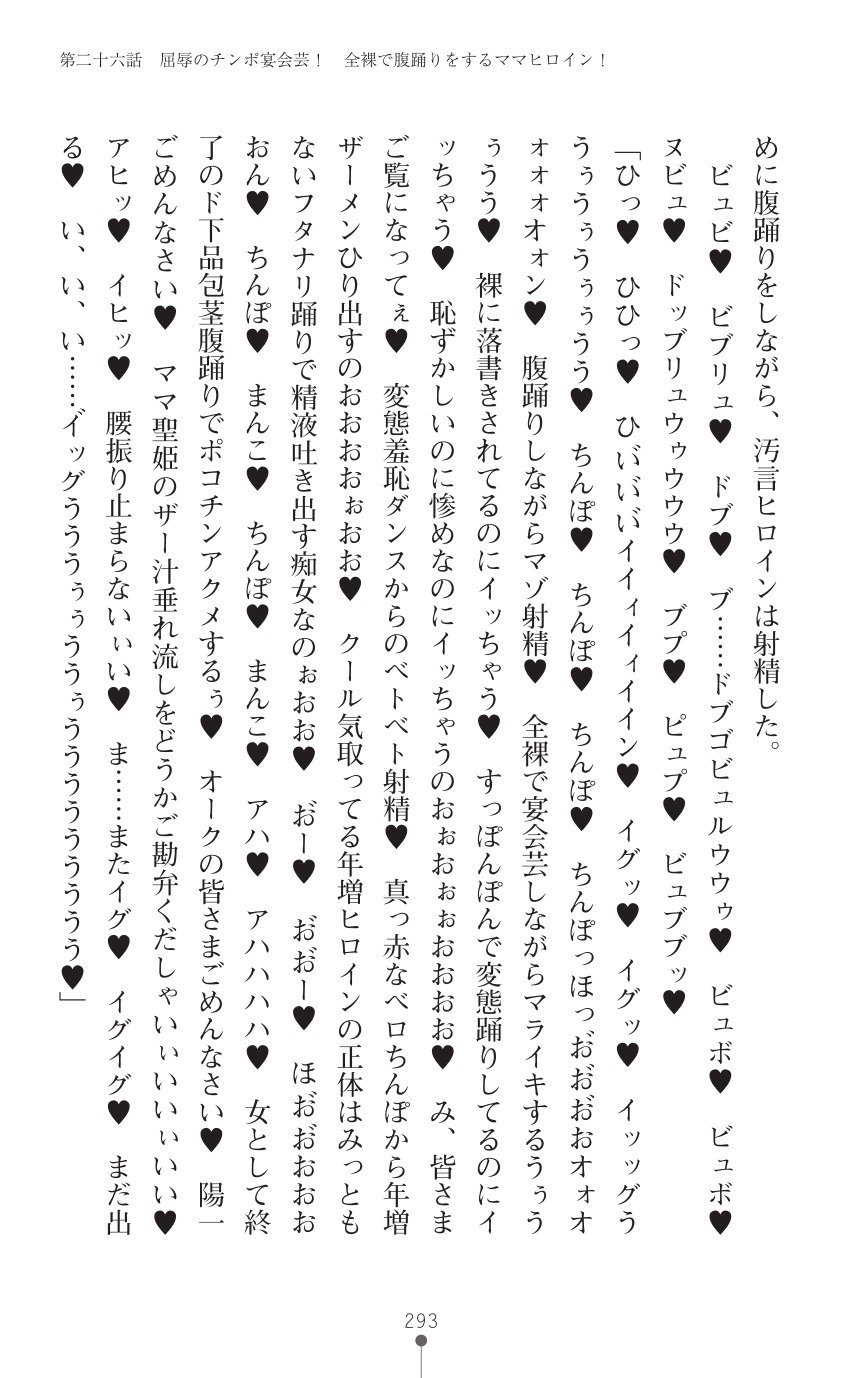 第二十六話　屈辱のチンポ宴会芸！　全裸で腹踊りをするママヒロイン！
めに腹踊りをしながら、汚言ヒロインは射精した。
　ビュビ♥　ビブリュ♥　ドブ♥　ブ……ドブゴビュルウウゥ♥　ビュボ♥　ビュボ♥
ヌビュ♥　ドッブリュウゥウウウ♥　ブプ♥　ピュプ♥　ビュブブッ♥
「ひっ♥　ひひっ♥　ひぃ゛ぃ゛ぃ゛イイィイィイイン♥　イグッ♥　イグッ♥　イッッグう
うぅうぅうぅぅうう♥　ちんぽ♥　ちんぽ♥　ちんぽ♥　ちんぽっほっお゛お゛お゛おオォオ
ォォォオォン♥　腹踊りしながらマゾ射精♥　全裸で宴会芸しながらマライキするうぅう
ぅうう♥　裸に落書きされてるのにイッちゃう♥　すっぽんぽんで変態踊りしてるのにイ
ッちゃう♥　恥ずかしいのに惨めなのにイッちゃうのおぉおぉぉおおおお♥　み、皆さま
ご覧になってぇ♥　変態羞恥ダンスからのベトベト射精♥　真っ赤なベロちんぽから年増
ザーメンひり出すのおおおおぉおお♥　クール気取ってる年増ヒロインの正体はみっとも
ないフタナリ踊りで精液吐き出す痴女なのぉおお♥　お゛ー♥　お゛お゛ー♥　ほお゛お゛おおお
おん♥　ちんぽ♥　まんこ♥　ちんぽ♥　まんこ♥　アハ♥　アハハハハ♥　女として終
了のド下品包茎腹踊りでポコチンアクメするぅ♥　オークの皆さまごめんなさい♥　陽一
ごめんなさい♥　ママ聖姫のザー汁垂れ流しをどうかご勘弁くだしゃいぃいいいぃいい♥
アヒッ♥　イヒッ♥　腰振り止まらないぃい♥　ま……またイグ♥　イグイグ♥　まだ出
る♥　い、い、い……イ゛ッグうううぅぅううぅううううううううう♥」
293